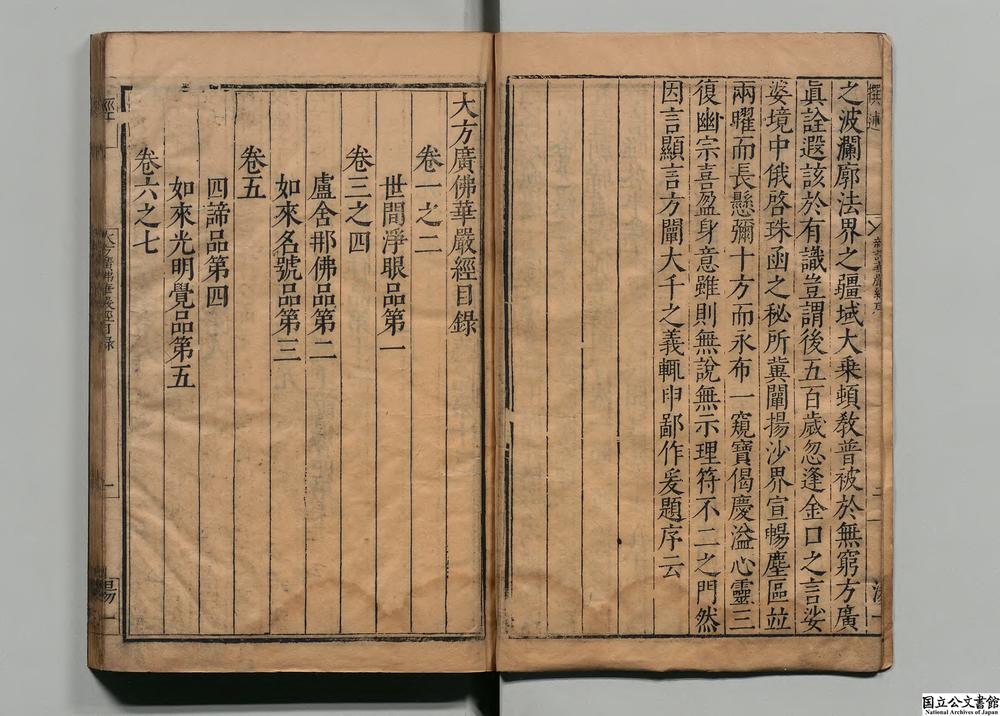 之波瀾廓法界之疆域大乘頓教普被於無窮方廣
眞詮遐該於有識豈謂後五百歲忽逢金口之言娑
婆境中俄啓珠函之秘所冀闡揚沙界宣暢塵區並
兩曜而長懸彌十方而永布一窺寶偈慶溢心靈三
復幽宗喜盈身意雖則無說無示理符不二之門然
因言顯言方闡大千之義輒申鄙作爰題序云
大方廣佛華嚴經目錄
卷一之二
世間淨眼品第一
卷三之四
盧舍那佛品第二
如來名號品第三
卷五
四諦品第四
如來光明覺品第五
卷六之七
大方廣佛華嚴經目錄
国立公文書館
National Archives of Japan